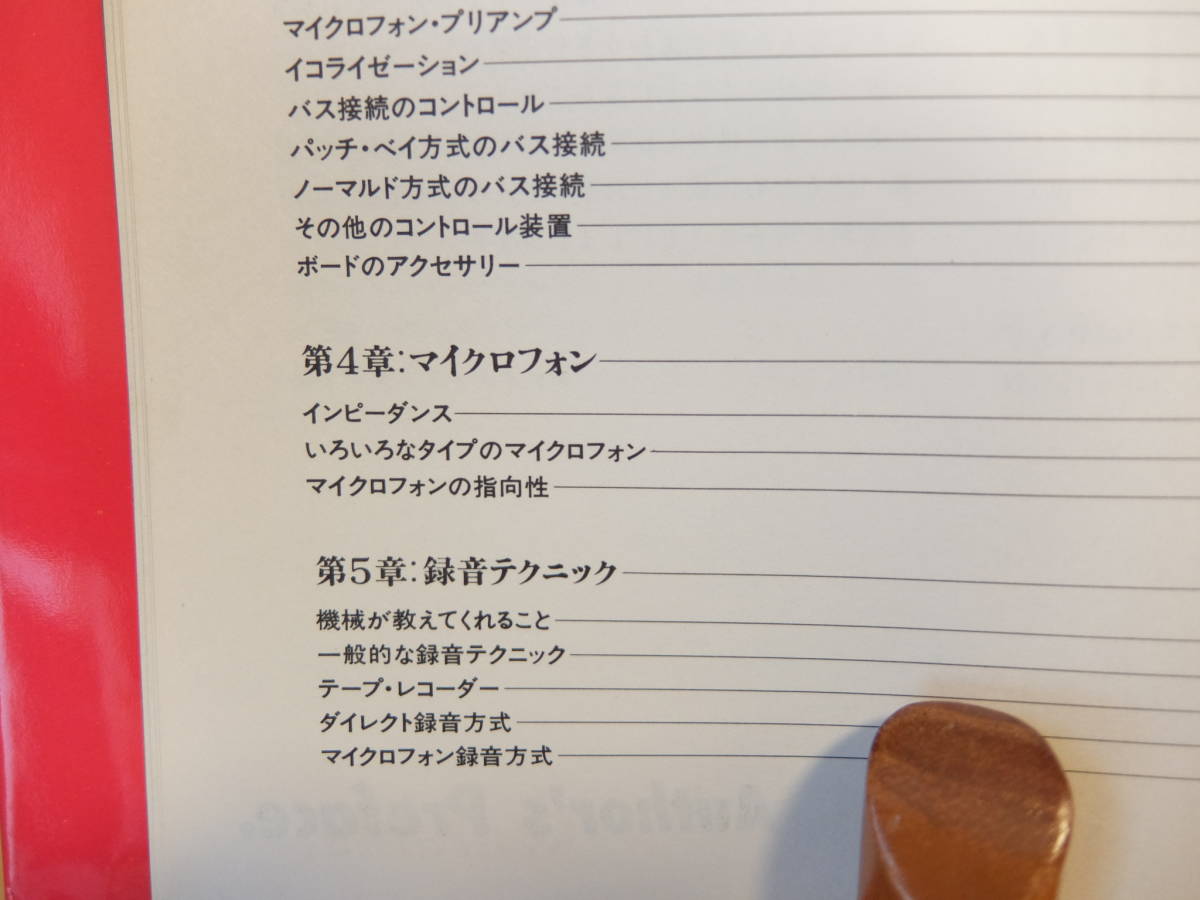 マイクロフォン・プリアンプ
イコライゼーション
バス接続のコントロール
パッチ・ベイ方式のバス接続
ノーマルド方式のバス接続
その他のコントロール装置
ボードのアクセサリー
第4章:マイクロフォン
インピーダンス
いろいろなタイプのマイクロフォン
マイクロフォンの指向性
第5章:録音テクニック
機械が教えてくれること
一般的な録音テクニック
テープ・レコーダー
ダイレクト録音方式
マイクロフォン録音方式
Author's Preface.